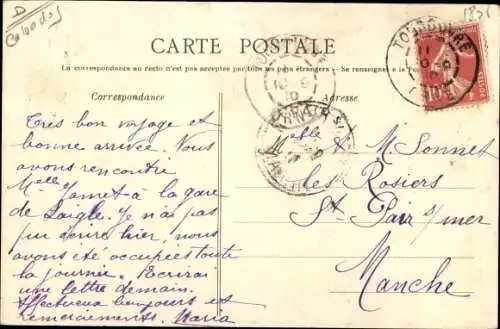 D
Calvados
18
CARTE POSTALE
La correspondance au recto n'est pas acceptée par tous les pays étrangers. Se renseigner à la Poste
Correspondance
Adresse
Très bon voyage et
bonne arrivée. Vous
avons rencontré
Melle Jamet à la gare
de Laigle. Je n'ai pas
pu écrire hier, nous
avons été occupées toute
la journée. Écrirai
une lettre demain.
Affectueux bonjours et
remerciements. Maria
Melle M. Sonnet
Les Rosiers
St Pair s/mer
Manche